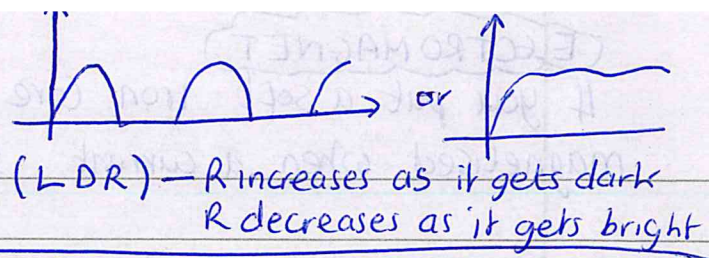 or
(LDR) – R increases as it gets dark
R decreases as it gets bright